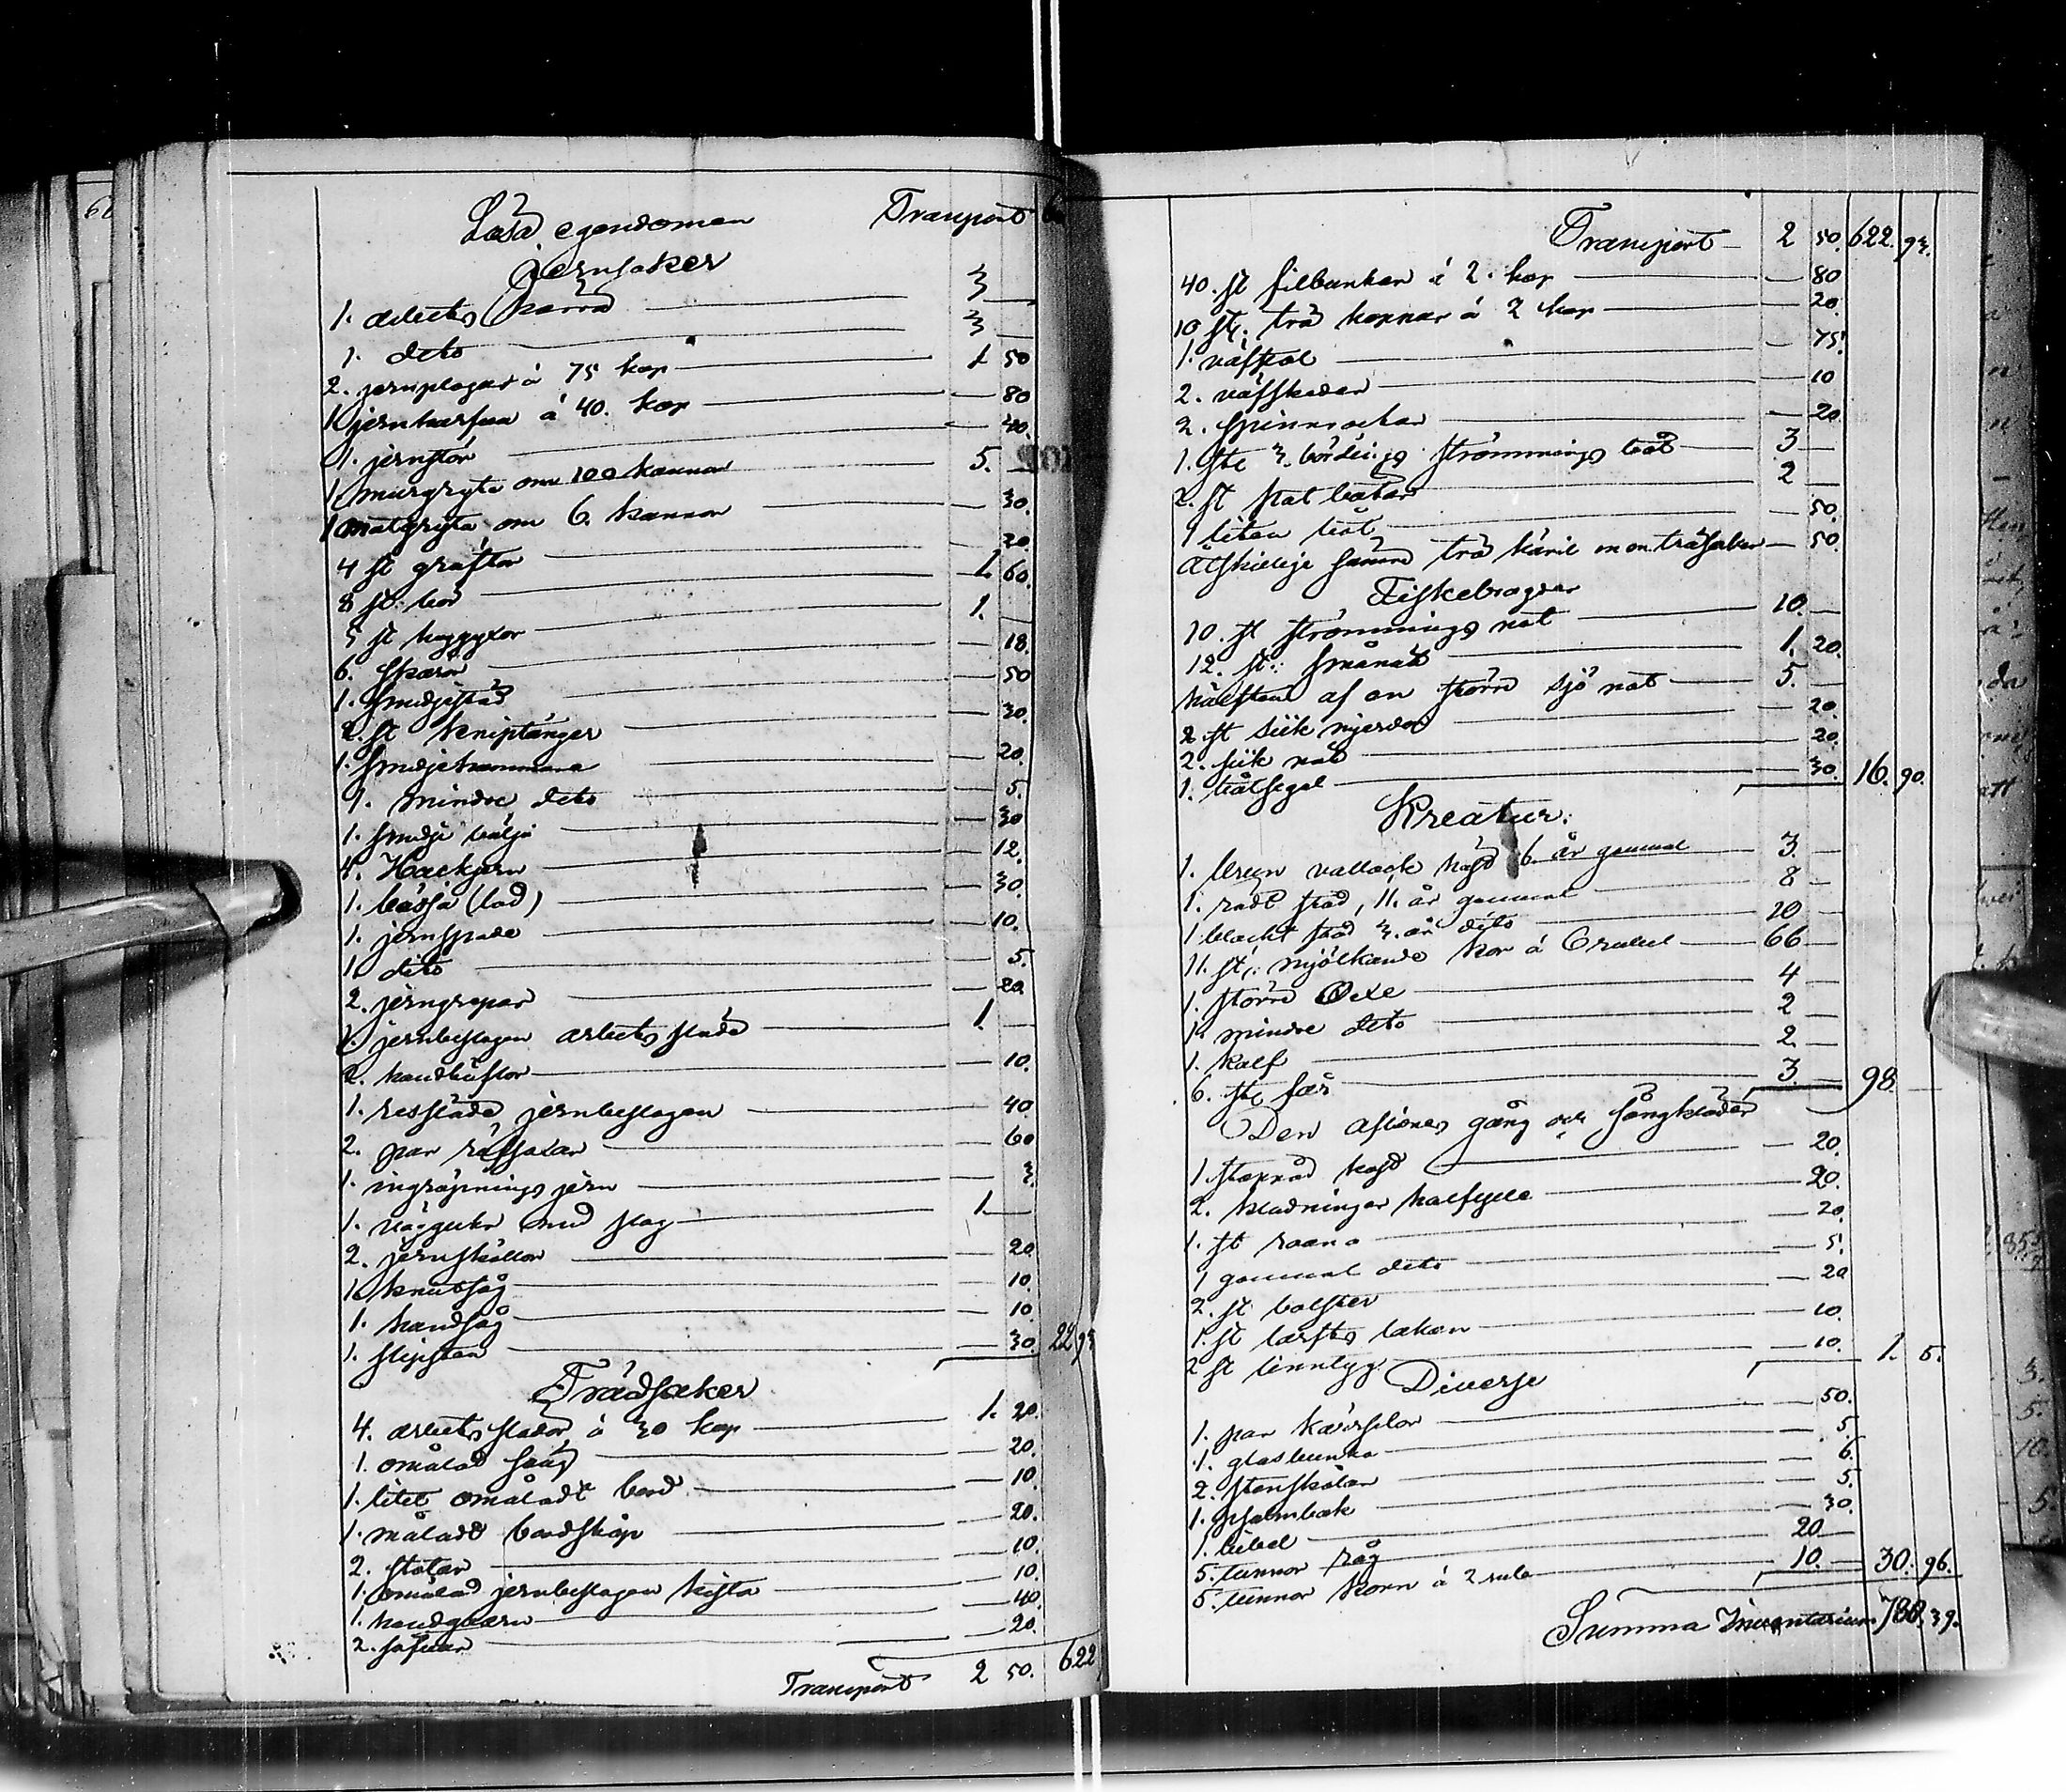 Lösa egendomen Transport
Jernsaker
1. arbets kärra 3 —
1. dito 3 —
2. jernplogar á 75 kop 1 50
1 jernharfva á 40. kop — 80
1. jernstör — 40.
1 murgryta om 100 kannor 5. —
1 matgryta om 6. kannor — 30.
4 st grafton — 20
8 st. lior 1. 60.
5 st huggyxor 1. —
6. skäror — 18.
1. smidjestäd — 50
2. st kniptänger — 30.
1. smidjehammare — 20.
1. mindre dito — 5.
1. smidje bälja — 30
4. Hackjern — 12.
1. bössa (lod) — 30.
1. jernspade — 10.
1. dito — 5.
2. jerngrepar — 20
1. jernbeslagen arbets släde 1. —
2. handbilor — 10.
1. ressläde jernbeslagen — 40
2. par — 60
1. jern — 3.
1. väggur med slag 1. —
2. jernskållor — 20
1. knutsåg — 10.
1. handsåg — 10
1. slipsten — 30. 22 93
Trädsaker
4. arbets slädor á 30 kop 1. 20.
1. omålad säng — 20.
1. litet omåladt bord — 10.
1. måladt bordskåp — 20.
2. stolar — 10.
1. omålad jernbeslagen kista — 10.
1. handqvarn — 40.
2. såfvar — 20.
Transport 2 50. 622
Transport 2 50. 622. 93.
40. st filbunkar á 2. kop — 80
10 st. trä koppar á 2 kop — 20.
1. väfstol — 75.
2. väfskedar — 10
2. spinnrockar — 20.
1. st 3. bördings strömmings båt 3 —
2. st skot båtar 2 —
1 liten båt — 50.
Åtskillige sämre trä käril m m träsaker — 50.
Fiskebragder
10. st strömmings nät 10. —
12. st. smånät 1. 20.
hälften af en större sjö not 5. —
2. st siik mjerdor — 20.
2. siik nät — 20.
1. båtsegel — 30. 16. 90.
Kreatur:
1. brun vallack häst 6. år gammal 3. —
1. rödt stod, 11. år gammal 8 —
1 blackt stod 3. år dito 10 —
11. st. mjölkande kor á 6 rubel 66 —
1. större Oxe 4 —
1. mindre dito 2 —
1. kalf 2. —
6. st får 3. — 98. —
Den aflidnes gång och sängkläder
1. stoppad — 20.
2. klädningar halfylle — 20.
1. st raano — 20.
1 gammal dito — 5.
2. st bolster — 20
1. st lärfts lakan — 10.
2 st linntyg — 10. 1. 5.
Diverse
1. par körselor — 50.
1. glasbunke — 5.
2. stenskålar — 6.
1. psalmbok — 5.
1. bibel — 30.
5. tunnor råg 20 —
5. tunnor korn á 2 rubl 10. — 30. 96.
Summa Inventarium 788. 39.